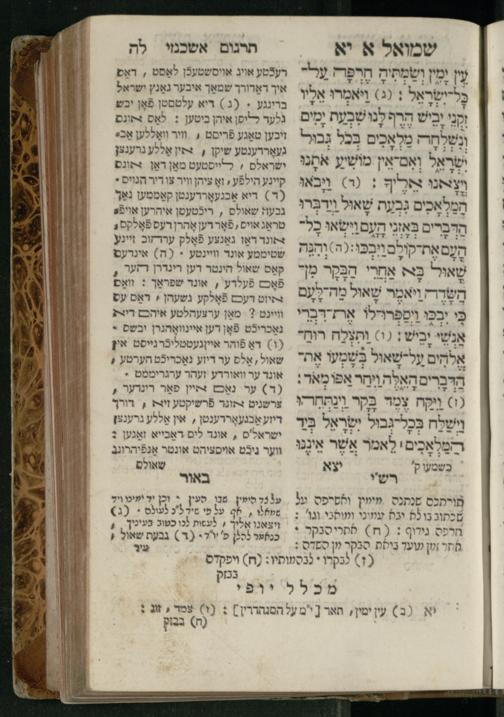 שמואל א יא
תרגום אשכנזי לה
עֵין יָמִין וְשַׂמְתִּיהָ חֶרְפָּה עַל־
כָּל־יִשְׂרָאֵל : (ג) וַיֹּאמְרוּ אֵלָיו
זִקְנֵי יָבֵישׁ הֶרֶף לָנוּ שִׁבְעַת יָמִים
וְנִשְׁלְחָה מַלְאָכִים בְּכֹל גְּבוּל
יִשְׂרָאֵל וְאִם־אֵין מוֹשִׁיעַ אֹתָנוּ
וְיָצָאנוּ אֵלֶיךָ : (ד) וַיָּבֹאוּ
הַמַּלְאָכִים גִּבְעַת שָׁאוּל וַיְדַבְּרוּ
הַדְּבָרִים בְּאָזְנֵי הָעָם וַיִּשְׂאוּ כָל־
הָעָם אֶת־קוֹלָם וַיִּבְכּוּ : (ה) וְהִנֵּה
שָׁאוּל בָּא אַחֲרֵי הַבָּקָר מִן־
הַשָּׂדֶה וַיֹּאמֶר שָׁאוּל מַה־לָּעָם
כִּי יִבְכּוּ וַיְסַפְּרוּ־לוֹ אֶת־דִּבְרֵי
אַנְשֵׁי יָבֵישׁ : (ו) וַתִּצְלַח רוּחַ־
אֱלֹהִים עַל־שָׁאוּל בְּשָׁמְעוֹ אֶת־
הַדְּבָרִים הָאֵלֶּה וַיִּחַר אַפּוֹ מְאֹד :
(ז) וַיִּקַּח צֶמֶד בָּקָר וַיְנַתְּחֵהוּ
וַיְשַׁלַּח בְּכָל־גְּבוּל יִשְׂרָאֵל בְּיַד
הַמַּלְאָכִים לֵאמֹר אֲשֶׁר אֵינֶנּוּ
כשמעו ק׳ יצא
רעכטע אויג אויסשטעכן לאסט , דאס
איך דאדורך שמאך איבער גאנץ ישראל
ברינגע . (ג) דיא עלטסטן פֿאן יבש
גלעד ליסן איהן ביטען : לאס אונס
זיבען טאגע פֿריסט , וויר וואֶללען אב=
געאָרדענטע שיקן , אין אללע גרענצן
ישראלס , לייסטעט מאן דאן אונס
קיינע הילפֿע , זא ציהן וויר צו דיר הנויס .
(ד) דיא אבגעאָרדענטן קאָממען נאך
גבעה שאולס , ריכטעטן איהרען אויפֿ=
טראג אויס , פֿאר דען אָהרן דעס פֿאָלקס ,
אונד דאז גאנצע פֿאָלק ערהוב זיינע
שטיממע אונד וויינטע . (ה) אינדעס
קאם שאול הינטר דען רינדרן הער ,
פֿאם פֿעלדע , אונד שפראך : וואס
איזט דעם פֿאָלקע געשעהן , דאס עס
וויינט ? מאן ערצעהלטע איהם דיא
נאכריכט פֿאן דען איינוואָהנרן יבשס .
(ו) דא פֿוהר איין געטטליכר גייסט אין
שאול , אלס ער דיזע נאכריכט הערטע ,
אונד ער וואורדע זעהר ערגרימט .
(ז) ער נאם איין פאר רינדער ,
צרשניט אונד צרשיקטע זיא , דורך
דיזע אבגעאָרדענטן , אין אללע גרענצן
ישראל׳ס , אונד ליס דאביא זאגען :
ווער ניכט אויסציהט אונטר אנפֿיהרונג
שאולס
רש״י
תורתכם שנתנה מימין ואשרפה על
שכתוב בו לא יבא עמוני ומואבי וגו׳ :
חרפה גידוף : (ה) אחרי הבקר .
אחר זמן מועד ביאת הבקר מן השדה :
באור
על צד הימין שבו העין . וכן יד ימינו ויד
שמאלו , אף על פי שיד ל״נ לעולם . (ג)
ויצאנו אליך , לעשות לנו כטוב בעיניך ,
כנאמר להלן פ׳ יו״ד . (ד) גבעת שאול ,
עיר
(ז) לבקרו . לבהמותיו : (ח) ויפקדם
בבזק
מכלל יופי
יא (ב) עין ימין , תאר [י״מ על הסנהדרין] : (ז) צמד , זוג :
(ח) בבזק